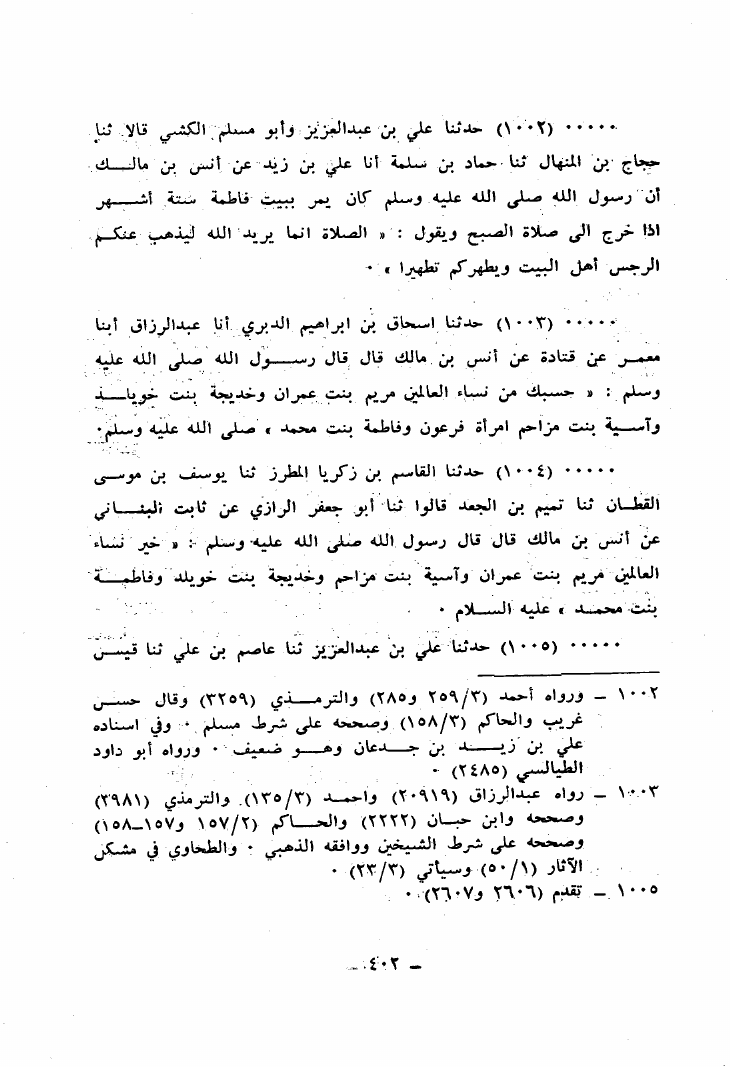 ٠٠٠٠٠ (١٠٠٢) حدثنا علي بن عبدالعزيز وأبو مسلم الكشي قالا ثنا
حجاج بن المنهال ثنا حماد بن سلمة أنا علي بن زيد عن أنس بن مالـــك
أن رسول الله صلى الله عليه وسلم كان يمر ببيت فاطمة ستة أشـــهر
اذا خرج الى صلاة الصبح ويقول : « الصلاة انما يريد الله ليذهب عنكـم
الرجس أهل البيت ويطهركم تطهيرا » ٠
٠٠٠٠٠ (١٠٠٣) حدثنا اسحاق بن ابراهيم الدبري أنا عبدالرزاق أبنا
معمـر عن قتادة عن أنس بن مالك قال قال رســـول الله صلى الله عليه
وسلم : « حسبك من نساء العالمين مريم بنت عمران وخديجة بنت خويلـــد
وآسـية بنت مزاحم امرأة فرعون وفاطمة بنت محمد » صلى الله عليه وسلم٠
٠٠٠٠٠ (١٠٠٤) حدثنا القاسم بن زكريا المطرز ثنا يوسف بن موسـى
القطـان ثنا تميم بن الجعد قالوا ثنا أبو جعفر الرازي عن ثابت البنـــاني
عن أنس بن مالك قال قال رسول الله صلى الله عليه وسلم : « خير نساء
العالمين مريم بنت عمران وآسية بنت مزاحم وخديجة بنت خويلد وفاطمـــة
بنت محمـد » عليه الســلام ٠
٠٠٠٠٠ (١٠٠٥) حدثنا علي بن عبدالعزيز ثنا عاصم بن علي ثنا قيـس
١٠٠٢ ــ ورواه أحمد (٢٥٩/٣ و٢٨٥) والترمـــذي (٣٢٥٩) وقال حســن
غريب والحاكم (١٥٨/٣) وصححه على شرط مسلم ٠ وفي اسناده
علي بن زيـــــد بن جـــدعان وهـــو ضعيف ٠ ورواه أبو داود
الطيالسي (٢٤٨٥) ٠
١٠٠٣ ــ رواه عبدالرزاق (٢٠٩١٩) واحمـد (١٣٥/٣) والترمذي (٣٩٨١)
وصححه وابن حبـان (٢٢٢٢) والحـــاكم (١٥٧/٢ و١٥٧ـ١٥٨)
وصححه على شرط الشيخين ووافقه الذهبي ٠ والطحاوي في مشكل
الآثار (٥٠/١) وسيأتي (٢٣/٣) ٠
١٠٠٥ ــ تقدم (٢٦٠٦ و٢٦٠٧) ٠
ــ ٤٠٢ ــ